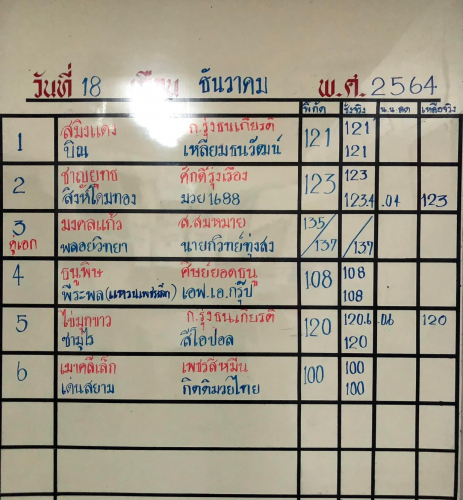 วันที่ 18 เดือน ธันวาคม พ.ศ. 2564
พิกัด ชั่งจริง น.น.ลด เหลือจริง
1 สมิงแดง ก.รุ่งธนเกียรติ 121 121
บิณ เหลี่ยมธนวัฒน์ 121
2 ชาญยุทธ ศักดิ์รุ่งเรือง 123 123
สิงห์โดมทอง มวย1688 123.4 .04 123
3 มงคลแก้ว ส.สมหมาย 135/137 /137
คู่เอก พลอยวิทยา นายกวิทย์ทุ่งสง
4 ธนูพิษ ศิษย์ยอดธนู 108 108
พีระพล เอฟ.เอ.กรุ๊ป 108
5 ไข่มุกขาว ก.รุ่งธนเกียรติ 120 120.6 .06 120
ซามูไร สีโอปอล 120
6 เมาคลีเล็ก เพชรสี่หมื่น 100 100
เด่นสยาม กิตติมวยไทย 100